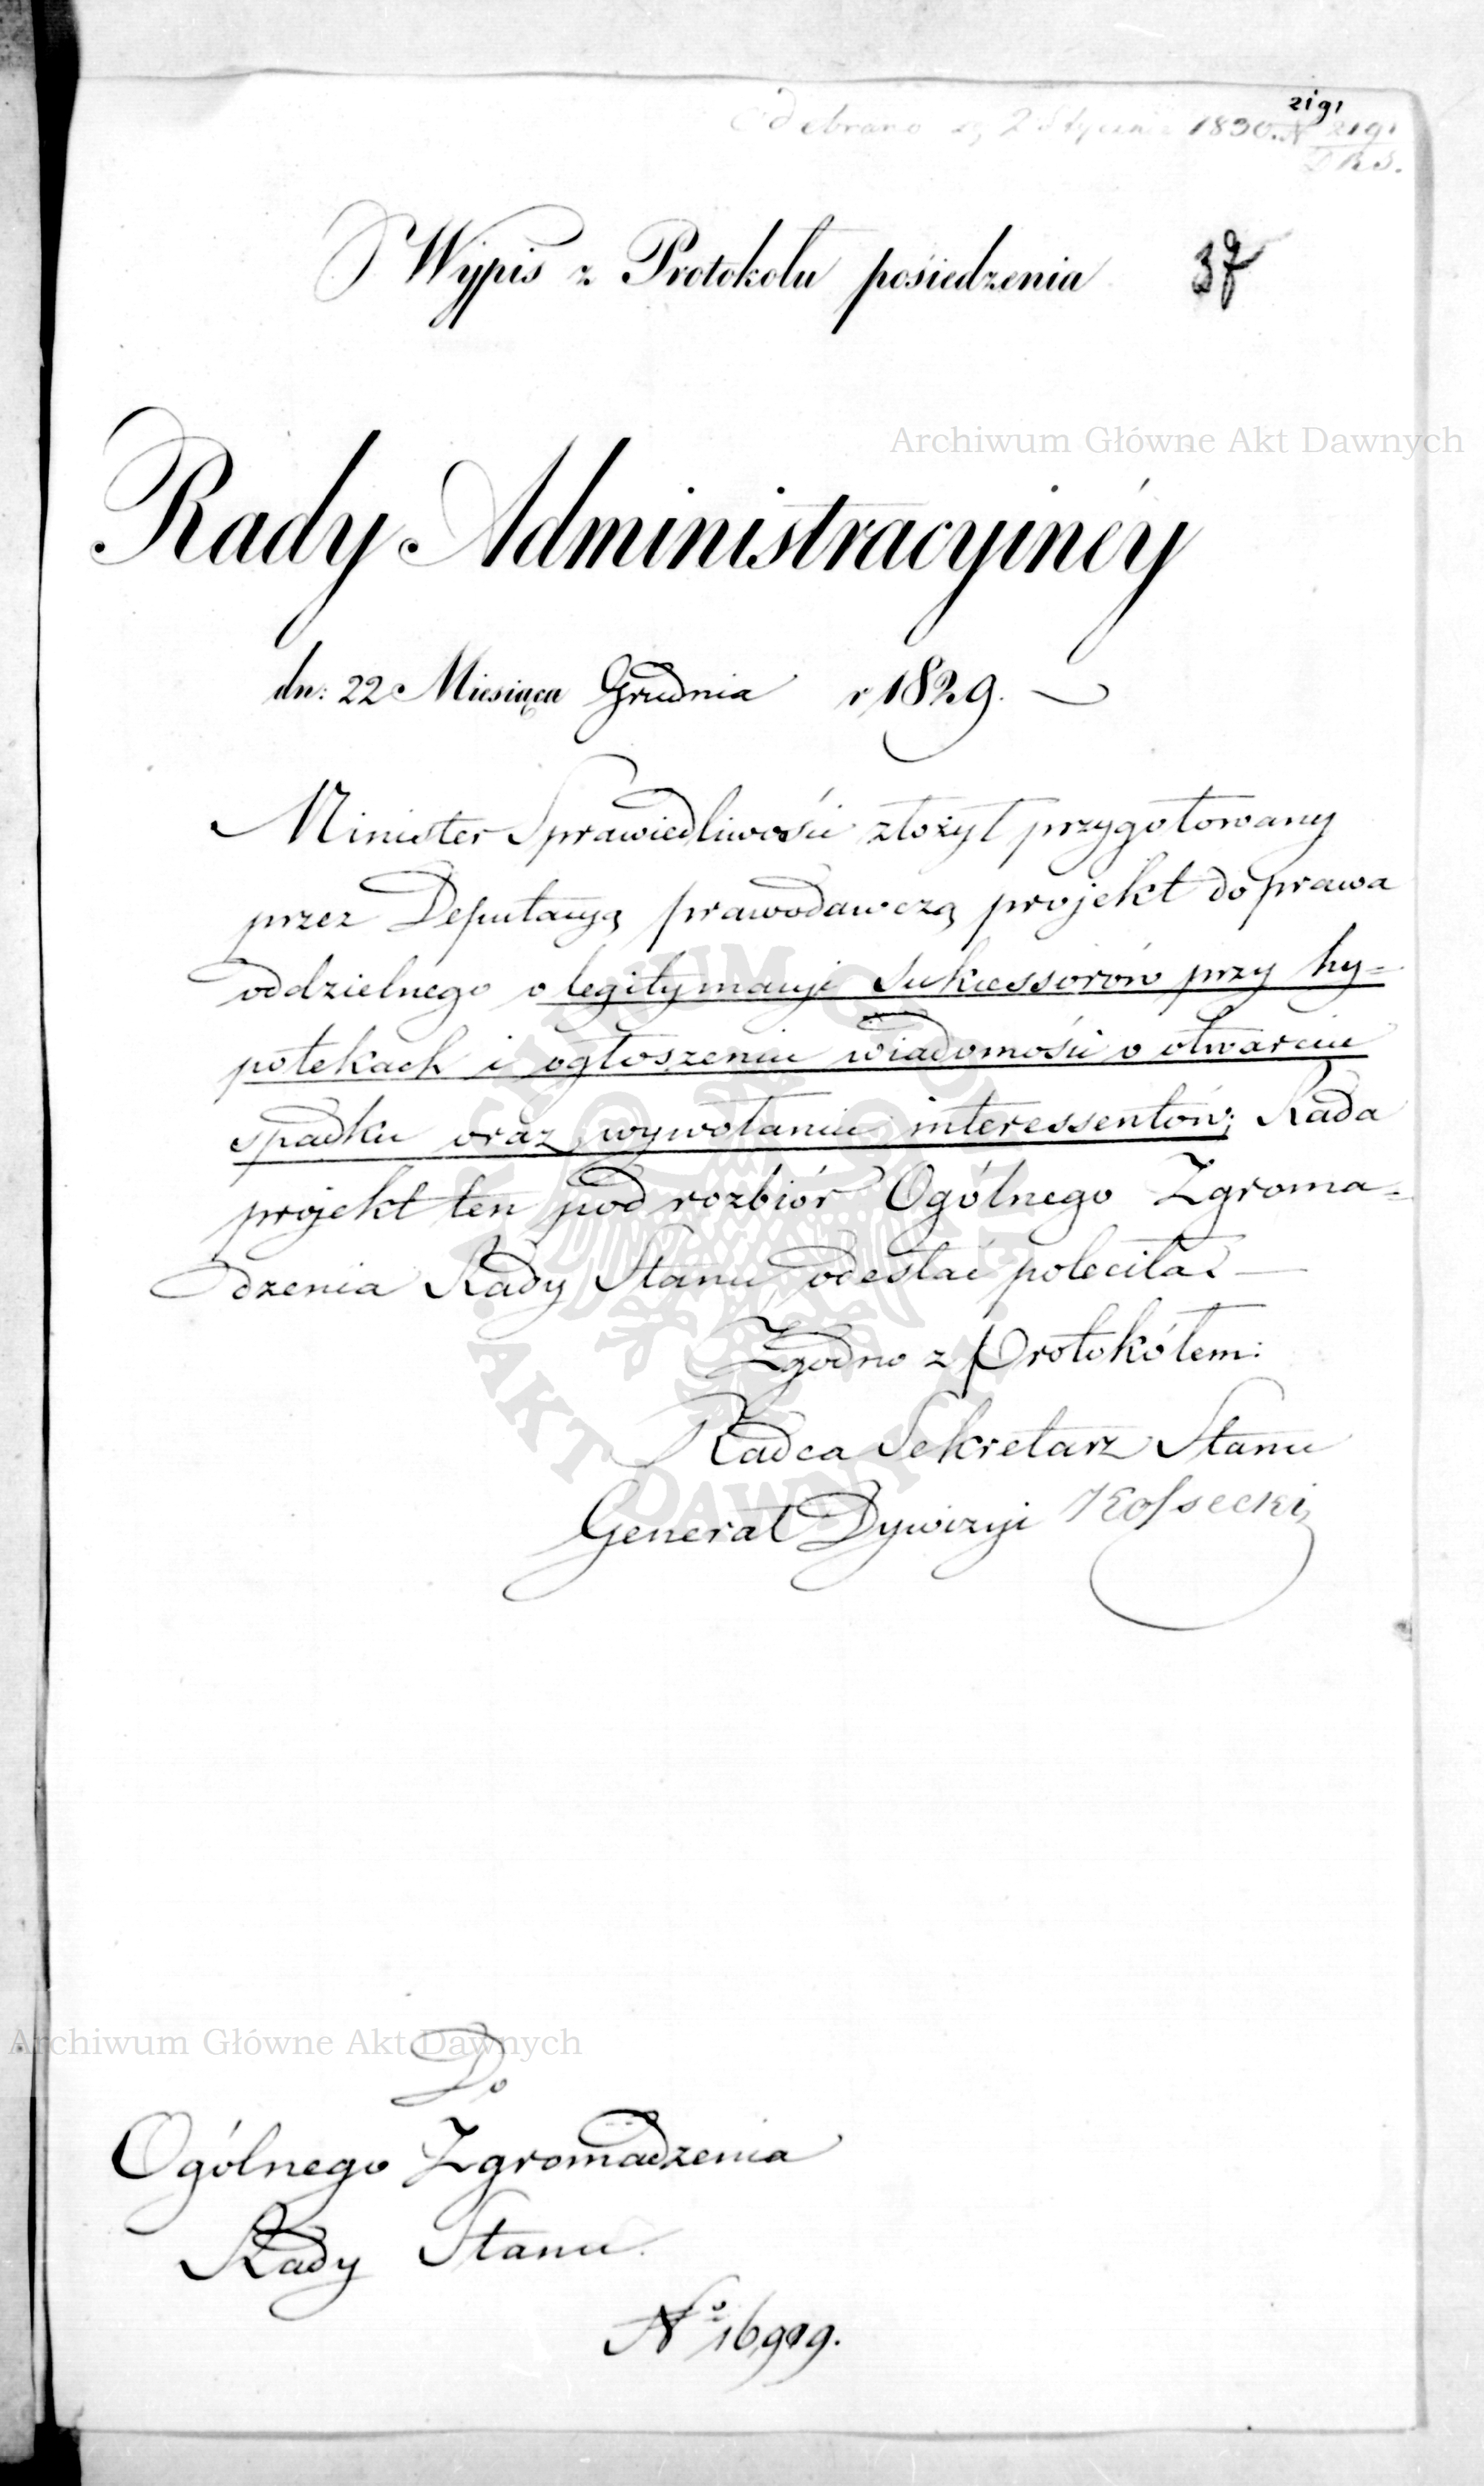 2191
Odebrano d. 2 Stycznia 1830. N 2191
D.R.S.
Wypis z Protokołu posiedzenia
37
Archiwum Główne Akt Dawnych
Rady Administracyinéy
dn: 22 Miesiąca Grudnia r 1829.
Minister Sprawiedliwości złożył przygotowany
przez Deputacyą prawodawczą projekt do prawa
oddzielnego o legitymacyi Sukcessorów przy hy=
potekach i ogłoszeniu wiadomości o otwarciu
spadku oraz wywołaniu interessentów; Rada
projekt ten pod rozbiór Ogólnego Zgroma=
dzenia Rady Stanu odesłać poleciła.
Zgodno z Protokółem:
Radca Sekretarz Stanu
Generał Dywizyi Kossecki
ARCHIWUM GŁÓWNE AKT DAWNYCH
Archiwum Główne Akt Dawnych
Do
Ogólnego Zgromadzenia
Rady Stanu.